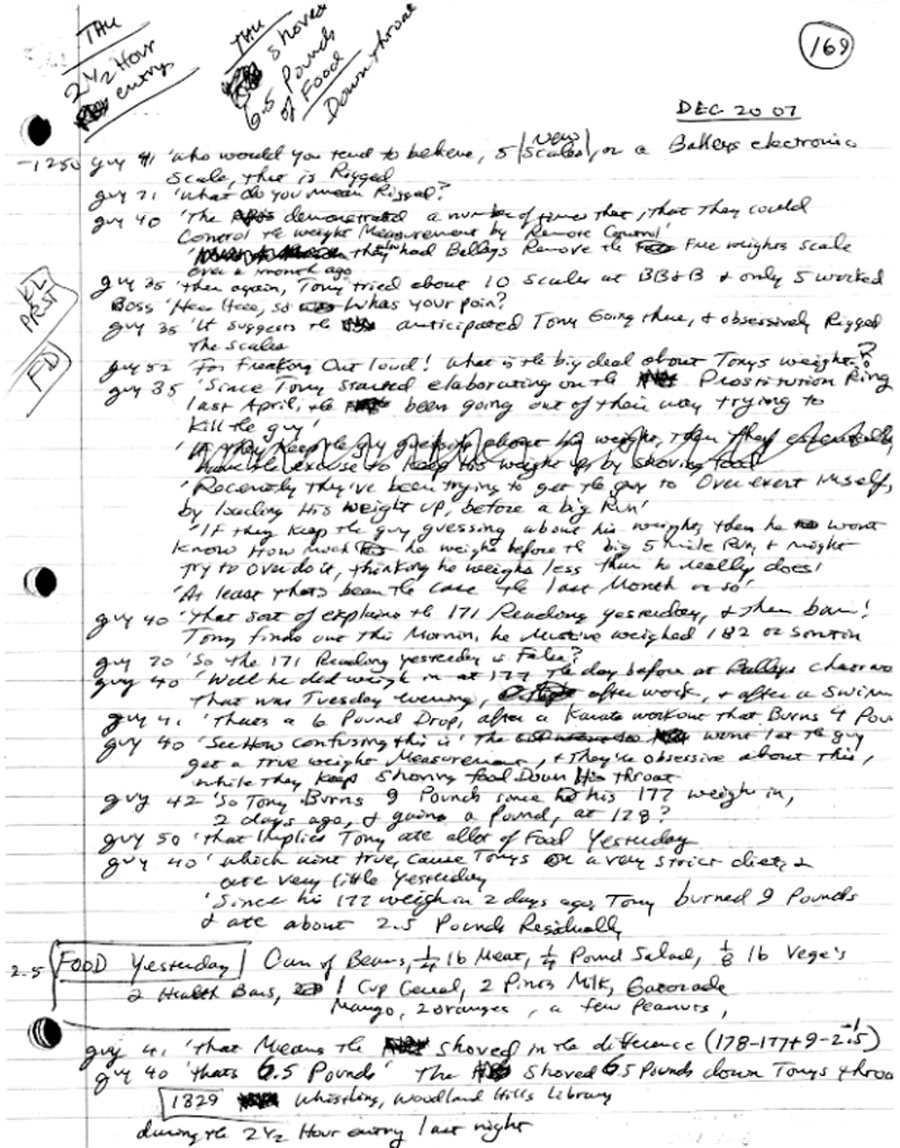 THU
2 1/2 Hour
entry
THU
shoved
6.5 Pounds
of Food
Down throat
169
DEC 20 07
-1250 guy 41 'who would you tend to believe, 5 |new scales|, or a Balleys electronic
scale, that is Rigged
guy 71 'what do you mean Rigged?
guy 40 'The demonstrated a number of times that, that they could
Control the weight Measurement by Remote Control'
they had Balleys Remove the Free weights scale
over a month ago
guy 35 'then again, Tony tried about 10 Scales at BB&B & only 5 worked
Boss 'Here Here, so whas your poin?
guy 35 'It suggests the anticipated Tony Going there, & obsessively Rigged
The scales
EL
PRST
FD
guy 52 'For Freaking Out loud! What is the big deal about Tonys weight?
guy 35 'Since Tony started elaborating on the Prostitution Ring
last April, the been going out of their way trying to
kill the guy'
'If they keep the guy guessing about his weight, then they essentially
have the excuse to keep his weight up by shoving food
'Recently they've been trying to get the guy to Over exert himself,
by loading His weight up, before a big Run'
'If they keep the guy guessing about his weight, then he wont
know How much he weighs before the big 5 mile Run, & might
try to Overdo it, thinking he weighs less than he really does'
'At least thats been the case the last Month or so'
guy 40 'that sort of explains the 171 Reading yesterday, & then bam!
Tony finds out this Mornin, he mustve weighed 182 or somtin
guy 70 'So the 171 Reading yesterday is False?
guy 40 'Well he did weigh in at 177 The day before at Balleys
that was Tuesday evening, after work, & after a Swim
guy 41 'Thats a 6 Pound Drop, after a Karate workout that Burns 4 Pou
guy 40 'See How confusing this is' The wont let the guy
get a true weight Measurement, & They're obsessive about this,
while they keep shoving food Down His throat
guy 42 'So Tony Burns 9 Pounds since his 177 weigh in,
2 days ago, & gains a Pound, at 178?
guy 50 'that Implies Tony ate allot of Food Yesterday
guy 40 'which aint true, cause Tonys on a very strict diet, &
ate very little yesterday
'Since his 177 weigh in 2 days ago, Tony burned 9 Pounds
& ate about 2.5 Pounds Residually
2.5 FOOD Yesterday Can of Beans, 1/4 lb Meat, 1/4 Pound Salad, 1/8 lb Vege's
2 Health Bars, 1 Cup Cereal, 2 Pints Milk, Gatorade
Mango, 2 oranges, a few Peanuts,
guy 41 'that Means the shoved in the difference (178-177+9-2.5)
guy 40 'thats 6.5 Pounds' The Shoved 6.5 Pounds down Tonys throa
1829 Whistling, Woodland Hills Library
during the 2 1/2 Hour entry last night